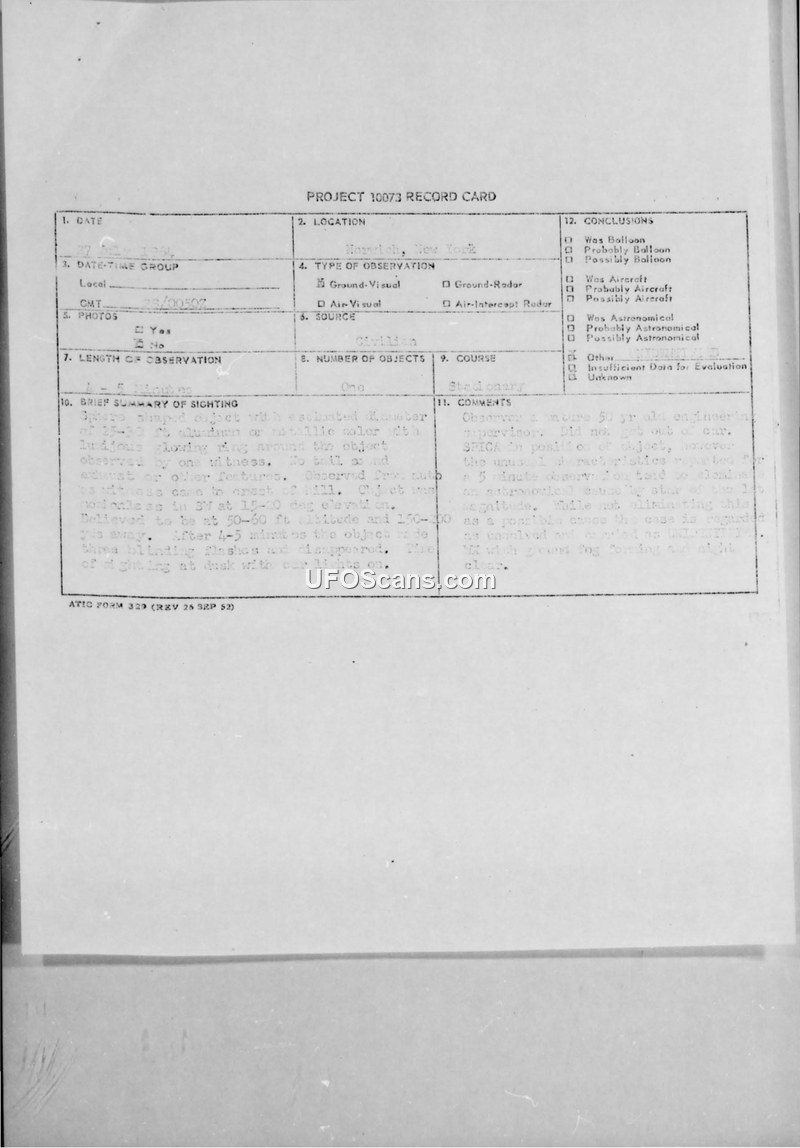 PROJECT 10073 RECORD CARD
1. DATE
27
2. LOCATION
Norwich, New York
12. CONCLUSIONS
Was Balloon
Probably Balloon
Possibly Balloon
Was Aircraft
Probably Aircraft
Possibly Aircraft
Was Astronomical
Probably Astronomical
Possibly Astronomical
Other
Insufficient Data for Evaluation
Unknown
3. DATE-TIME GROUP
Local
GMT 28/0050Z
4. TYPE OF OBSERVATION
Ground-Visual
Ground-Radar
Air-Visual
Air-Intercept Radar
5. PHOTOS
Yes
No
6. SOURCE
Civilian
7. LENGTH OF OBSERVATION
4 - 5 Minutes
8. NUMBER OF OBJECTS
One
9. COURSE
Stationary
10. BRIEF SUMMARY OF SIGHTING
shaped object with estimated diameter
of 25-30 ft aluminum or metallic color with
glowing ring around the object
observed by one witness. No tail sound
exhaust or other features. Observed from auto
as witness came to crest of hill. Object was
motionless in SW at 15-20 deg elevation.
Believed to be at 50-60 ft altitude and 150-200
yds away. After 4-5 minutes the object made
three blinding flashes and disappeared. Time
of sighting at dusk with car lights on.
11. COMMENTS
Observer a mature 5 yr old engineering
supervisor. Did not get out of car.
SPICA in position of object, however
the unusual characteristics reported for
a 5 minute observation tend to
an astronomical cause by star of the 1st
magnitude. While not eliminating this
as a possible cause the case is regarded
as unsolved and carried as
WX with ground fog forming and night
clear.
UFOScans.com
ATIC FORM 329 (REV 26 SEP 52)